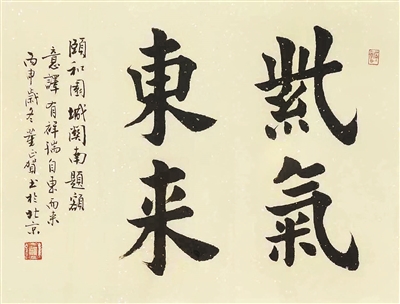 紫氣
東来
頤和園城關南題額
意譯有祥瑞自東而来
丙申歲冬董正賀書於北京